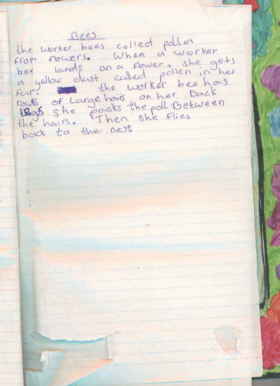 Bees
the worker bees collect pollin
from flowers. When a worker
bee lands on a flower. she gets
a yellow dust called pollen in her
fur. the worker bee has
rows of large hairs on her back
legs she packs the poll Between
the hairs. Then she flies
back to the nest